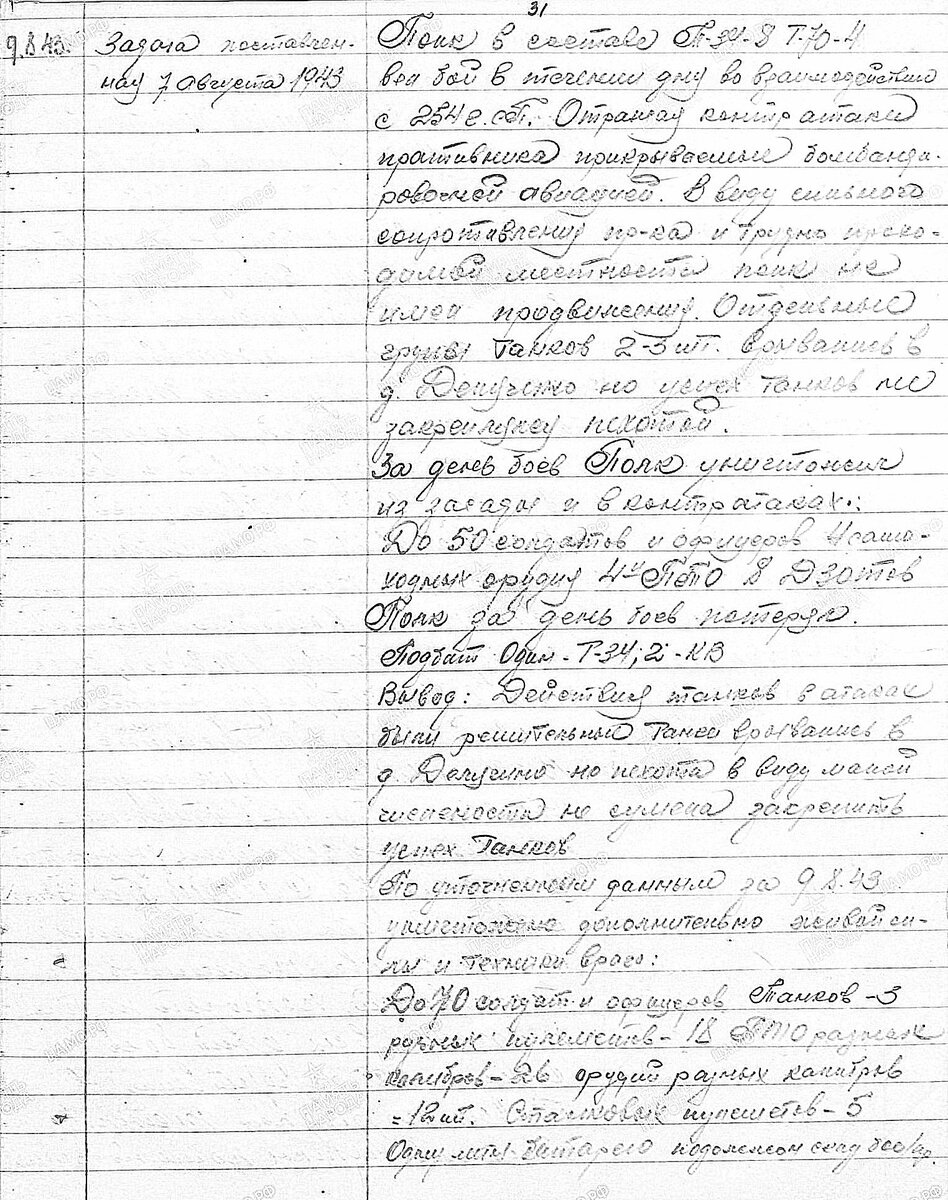 31
9.8.43. Задача поставлен-
ная 7 августа 1943
Полк в составе Т-34-8 Т-70-4
вел бой в течении дня во взаимодействии
с 254 г.сп. Отражая контр атаки
противника прикрываемые бомбанди-
ровочной авиацией. В виду сильного
сопротивления пр-ка и трудно прохо-
димой местности полк не
имел продвижения. Отдельные
группы танков 2-3 шт. врывались в
д. но успех танков не
закреплялся пехотой.
За день боев Полк уничтожил
из засады и в контратаках:
До 50 солдатов и офицеров 4 само-
ходных орудия 4 ПТО 8 Дзотов
Полк за день боев потерял.
Подбит Один - Т-34; 2 - КВ
Вывод: Действия танков в атаках
были решительные Танки врывались в
д. но пехота в виду малой
численности не сумела закрепить
успех Танков
По уточненным данным за 9.8.43
уничтожено дополнительно живой си-
лы и техники врага:
До 70 солдат и офицеров Танков - 3
ручных пулеметов - 18 ПТО разных
калибров - 26 орудий разных калибров
- 12 шт. Станковых пулеметов - 5
Одну батарею